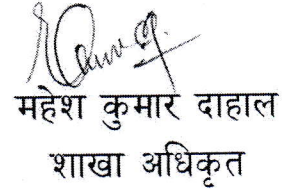 महेश कुमार दाहाल
शाखा अधिकृत